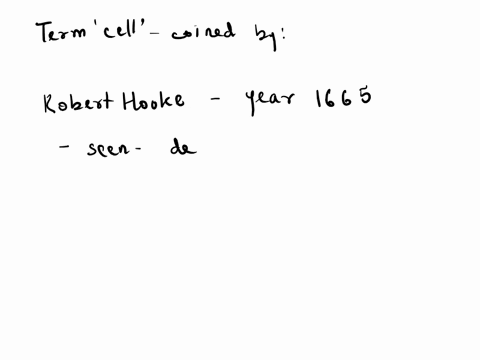 Term 'cell' - coined by:
Robert Hooke - year 1665
- seen - de